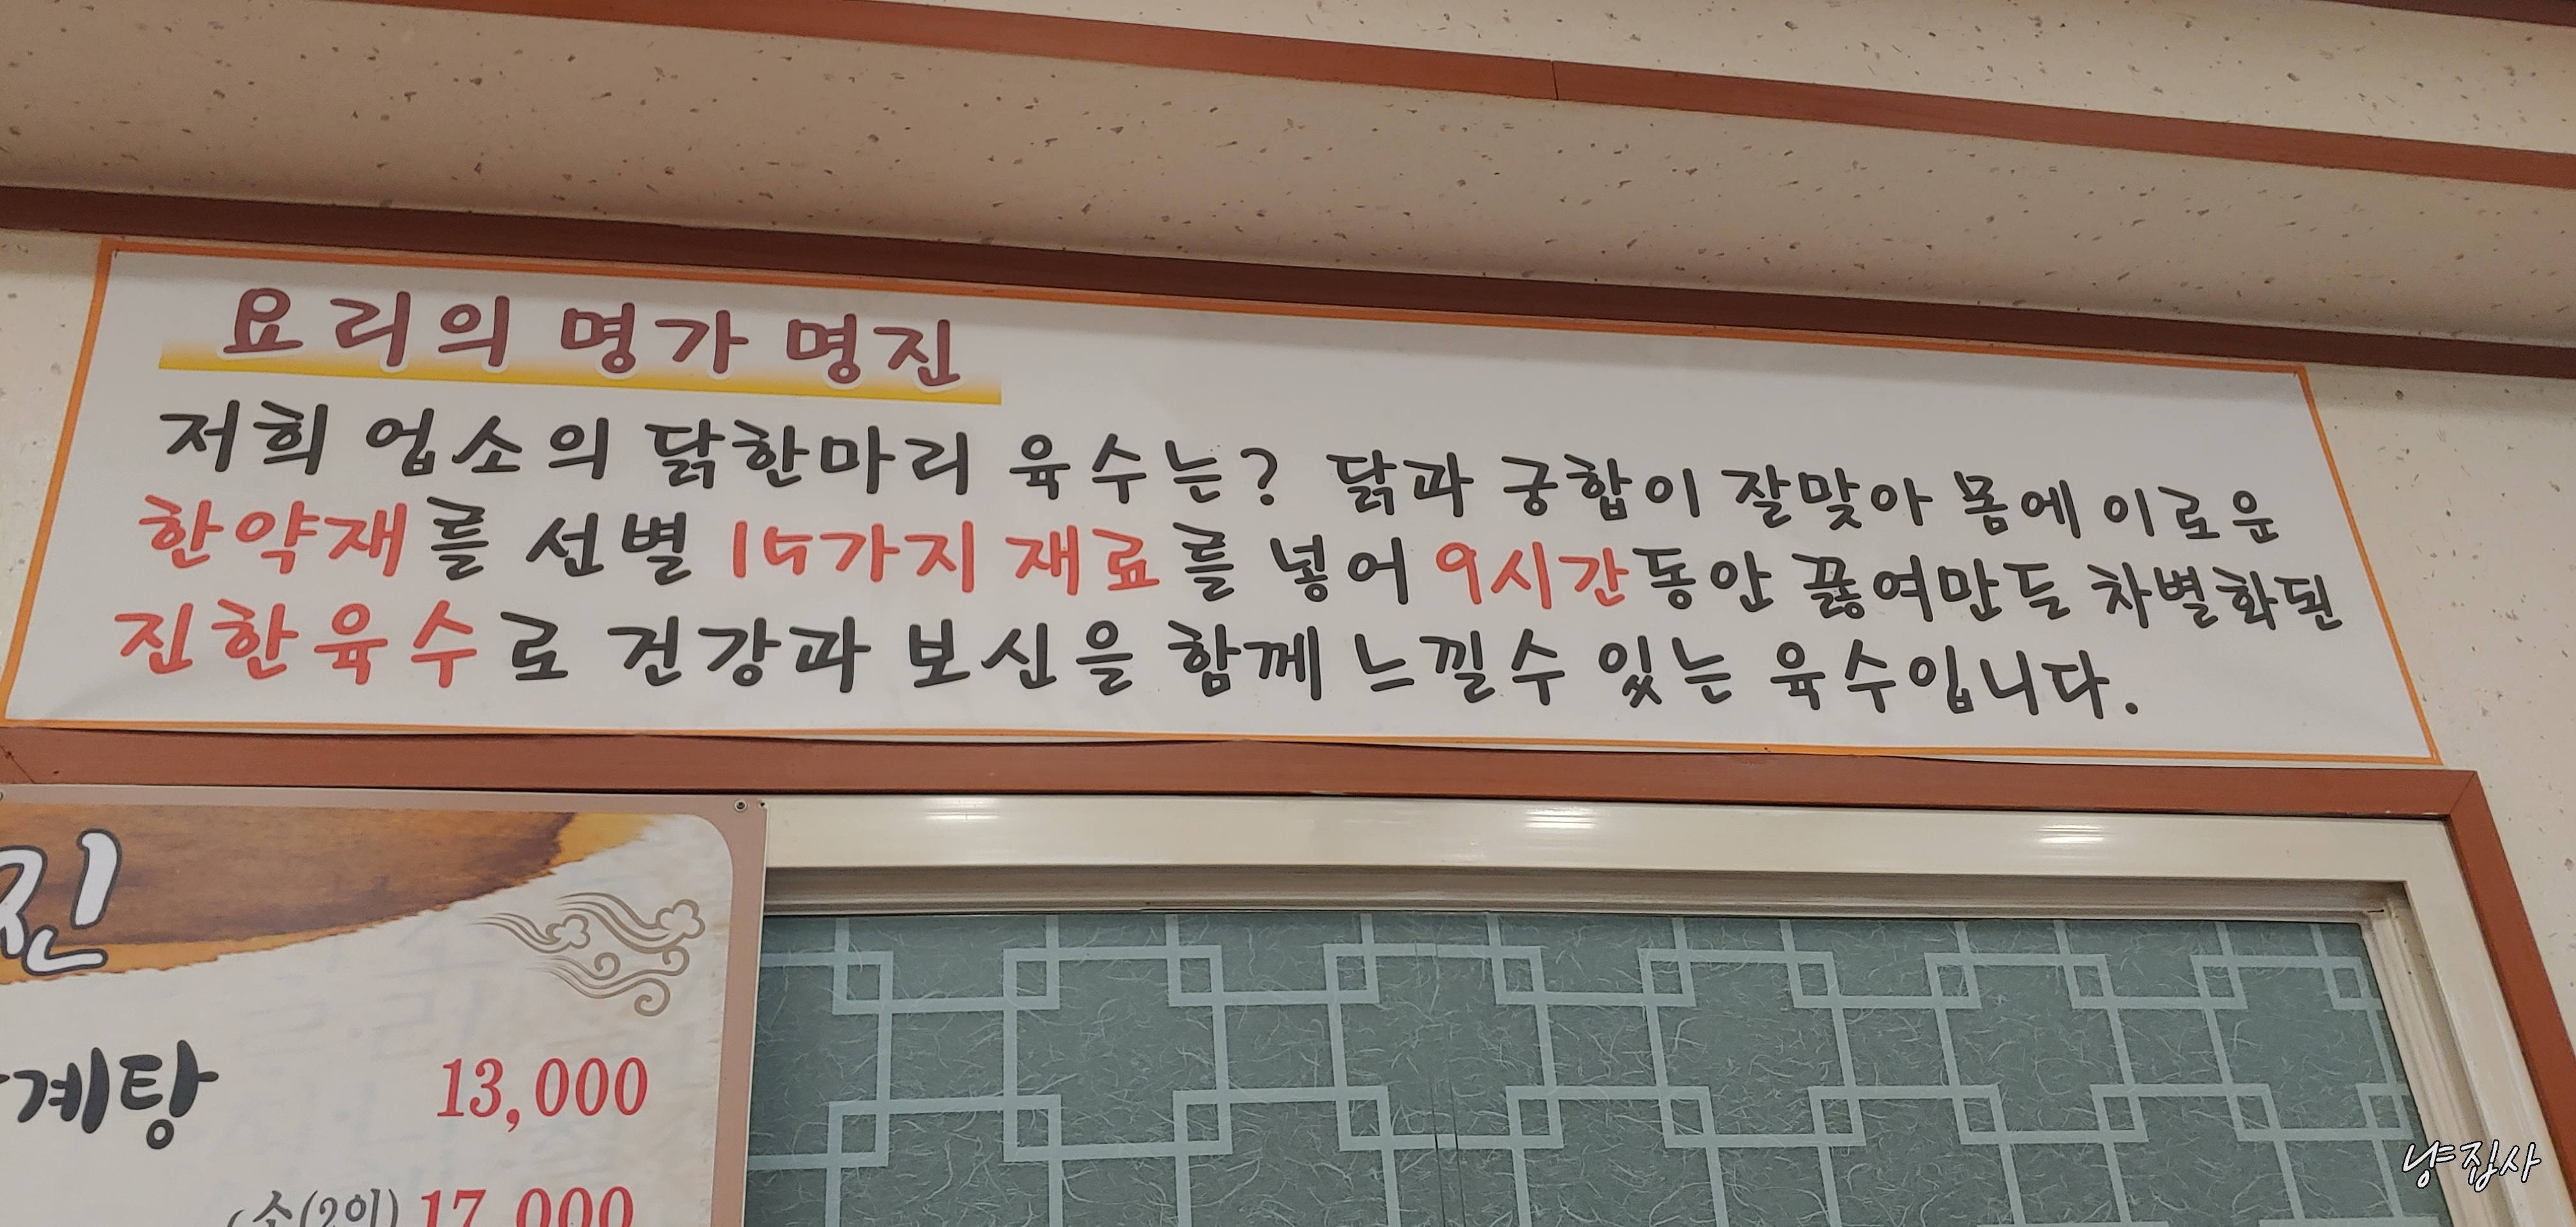 요리의 명가 명진
저희 업소의 닭한마리 육수는? 닭과 궁합이 잘맞아 몸에 이로운
한약재를 선별 15가지 재료를 넣어 9시간동안 끓여만든 차별화된
진한육수로 건강과 보신을 함께 느낄수 있는 육수입니다.
진
계탕 13,000
소(2인) 17,000
냥집사